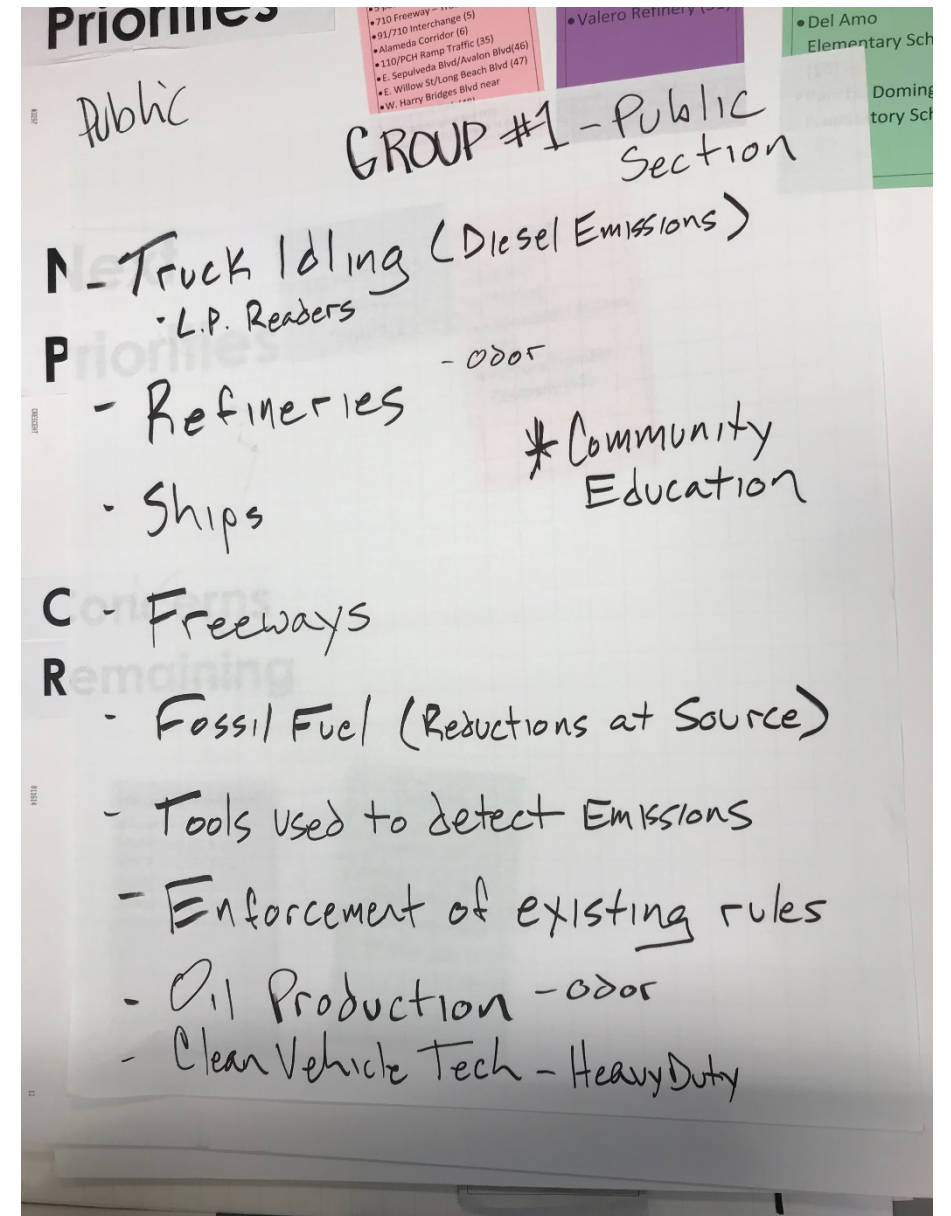 Priorities
• 710 Freeway –
• 91/710 Interchange (5)
• Alameda Corridor (6)
• 110/PCH Ramp Traffic (35)
• E. Sepulveda Blvd/Avalon Blvd(46)
• E. Willow St/Long Beach Blvd (47)
• W. Harry Bridges Blvd near
• Valero Refinery
• Del Amo
Elementary Sch
Doming
tory Sch
Public
GROUP #1 - Public
Section
N Next
- Truck Idling (Diesel Emissions)
· L.P. Readers
Priorities
- Refineries - odor
* Community
Education
· Ships
Concerns
- Freeways
Remaining
- Fossil Fuel (Reductions at Source)
- Tools used to detect Emissions
- Enforcement of existing rules
- Oil Production - odor
- Clean Vehicle Tech - Heavy Duty